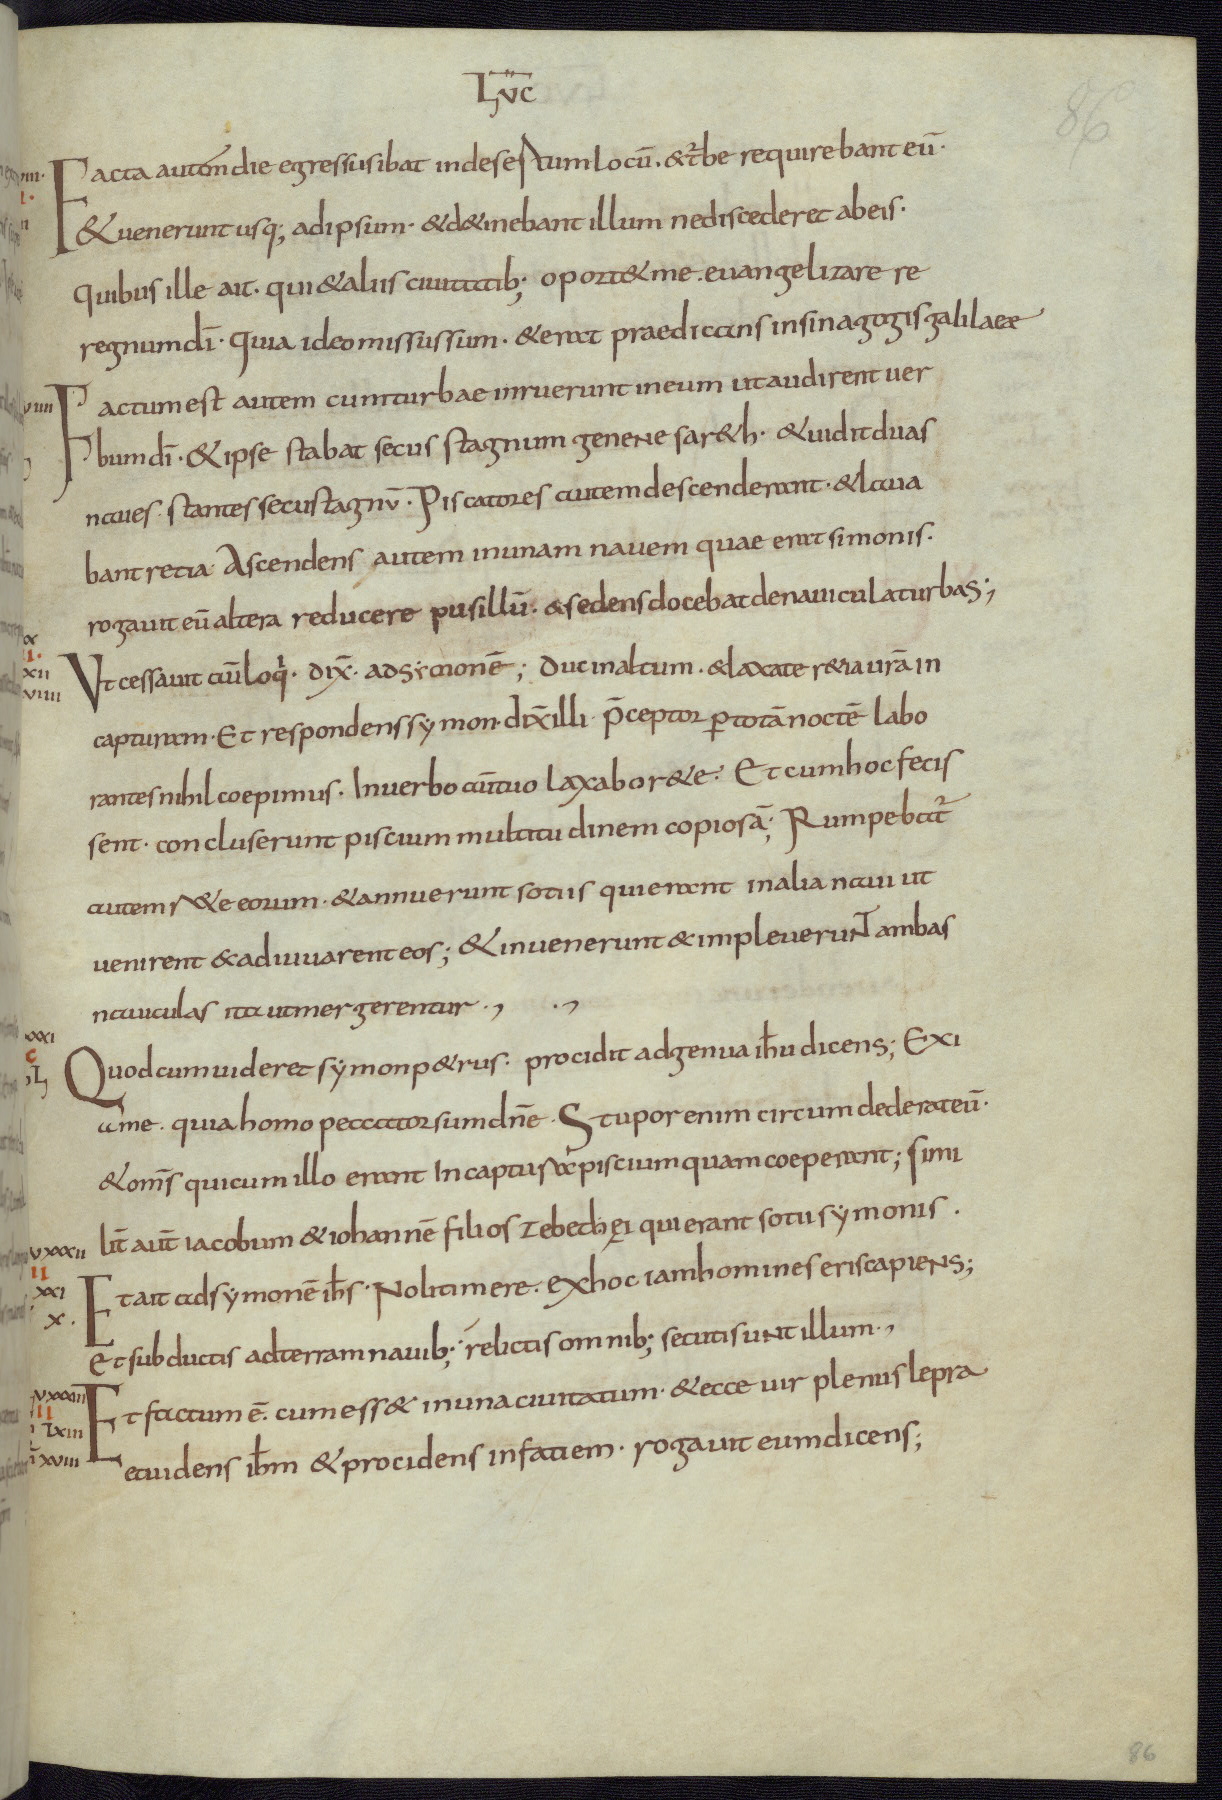 LVC
86
Facta autem die egressus ibat in desertum locū. & t̄be requirebant eū·
& uenerunt usq; ad ipsum· & d&inebant illum ne discederet ab eis·
Quibus ille ait· qui & aliis ciuitatib; oport& me euangelizare re
regnum dī· Quia ideo missus sum· & erat praedicans in sinagogis galilaeae
Factum est autem cum turbae inruerunt in eum ut audirent uer
bum dī· & ipse stabat secus stagnum genenesar&h· & uidit duas
naues stantes secus stagnū· Piscatores autem descenderant· & laua
bant retia· Ascendens autem in unam nauem quae erat simonis·
rogauit eū a terra reducere pusillū· & sedens docebat de nauicula turbas;
Vt cessauit cū loqi· dix̄· ad symonē; Duc in altum· & laxate r&ia urā in
capturam· Et respondens symon· dix̄ illi· p̄ceptor p totā noctē labo
rantes nihil coepimus· In uerbo aūt tuo laxabo r&e· Et cum hoc fecis
sent· concluserunt piscium multitudinem copiosā; Rumpebat̄
autem r&e eorum· & annuerunt sotiis qui erant in alia naui ut
uenirent & adiuuarent eos; & inuenerunt & impleuerunt ambas
nauiculas ita ut mergerentur·,  ·,
xxxi
Quod cum uideret symon p&rus· procidit ad genua ih̄u dicens; Exi
a me· quia homo peccator sum dn̄e· Stupor enim circumdederat eū·
& om̄s qui cum illo erant In captura piscium quam coeperant; simi
lit̄ aūt iacobum & iohannē filios zebedhęi qui erant sotii symonis·
vxxxii
II
xxi
x·
Et ait ad symonē ih̄s· Noli timere· ex hoc iam homines eris capiens;
Et subductis ad terram nauib; relictis omnib; secuti sunt illum·,
vxxxiii
II
lxiii
xviii
Et factum ē· cum ess& in una ciuitatum· & ecce uir plenus lepra
et uidens ih̄m & procidens in fatiem· rogauit eum dicens;
86